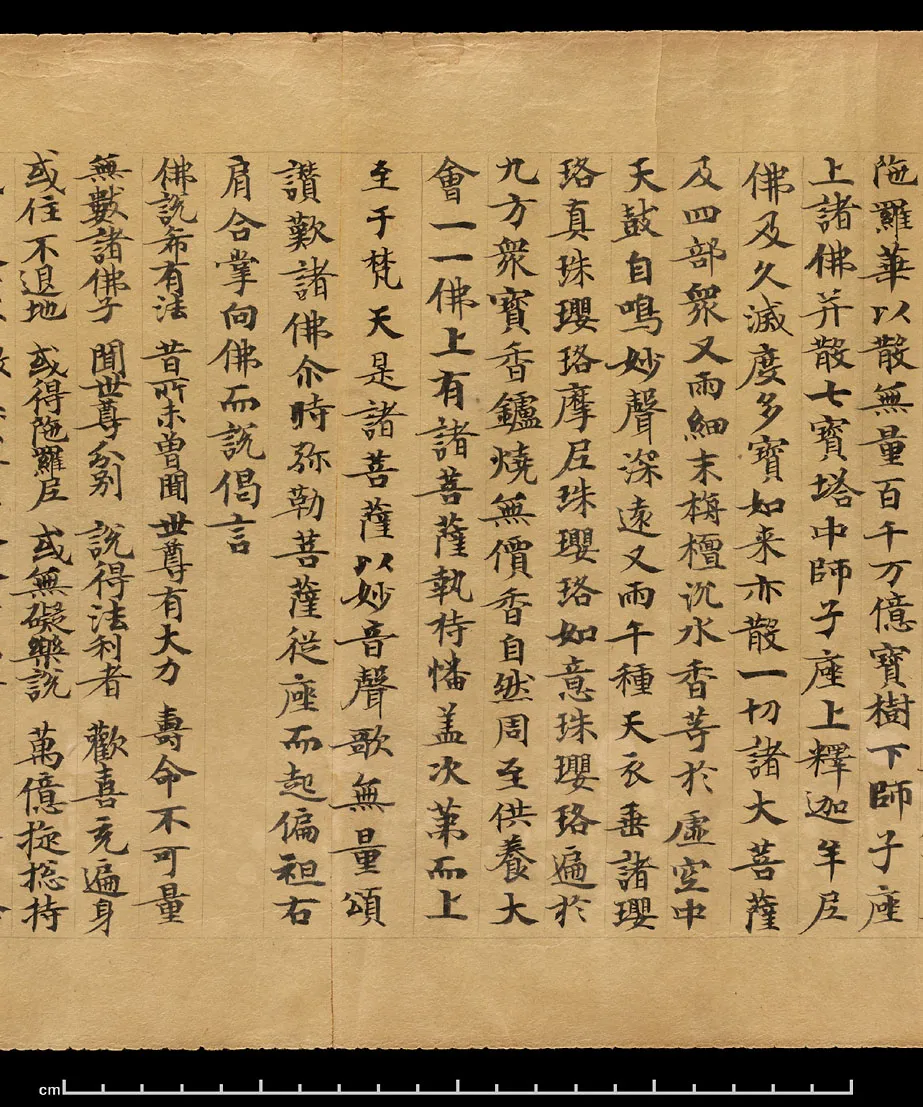 陁羅華以散無量百千万億寶樹下師子座
上諸佛并散七寶塔中師子座上釋迦牟尼
佛及久滅度多寶如来亦散一切諸大菩薩
及四部衆又雨細末栴檀沉水香等於虛空中
天鼓自鳴妙聲深遠又雨千種天衣垂諸瓔
珞真珠瓔珞摩尼珠瓔珞如意珠瓔珞遍於
九方衆寶香鑪燒無價香自然周至供養大
會一一佛上有諸菩薩執持幡盖次第而上
至于梵天是諸菩薩以妙音聲歌無量頌
讚歎諸佛尒時弥勒菩薩從座而起偏袒右
肩合掌向佛而說偈言
佛說希有法 昔所未曾聞 世尊有大力 壽命不可量
無數諸佛子 聞世尊分別 說得法利者 歡喜充遍身
或住不退地 或得陁羅尼 或無礙樂說 萬億旋捴持
cm